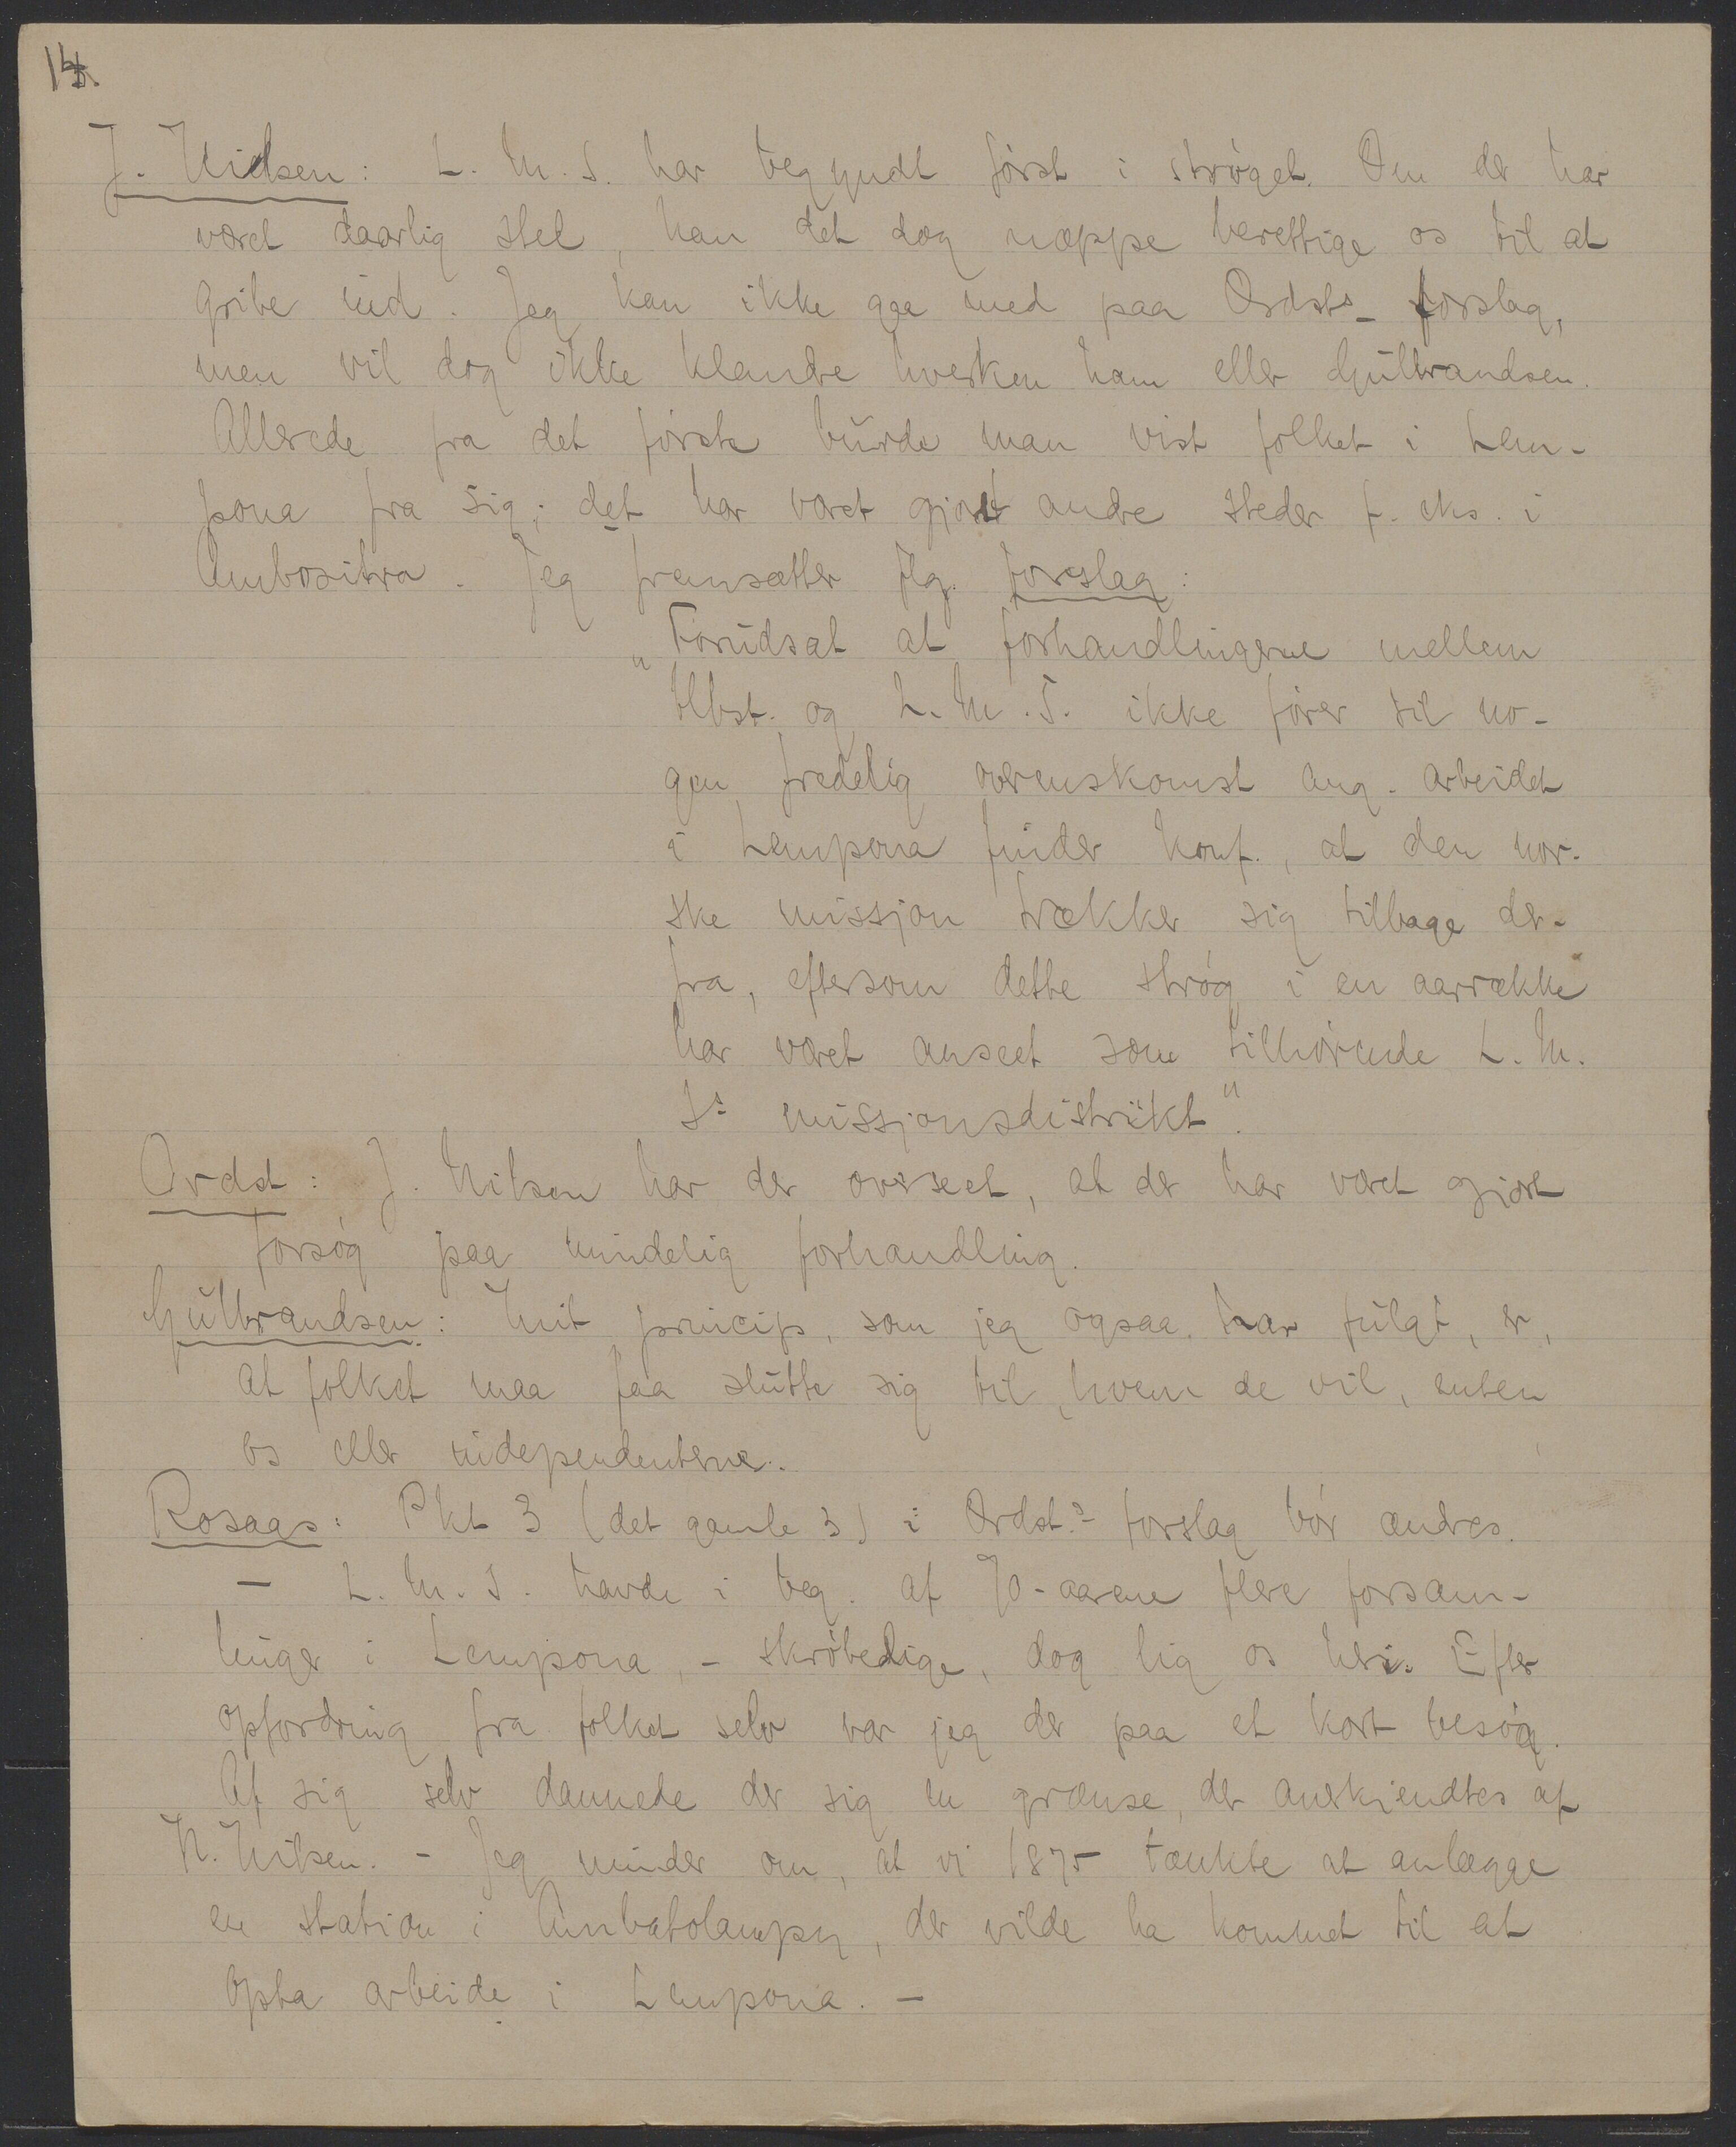 14.
J. Nilsen: L. M. S. har begyndt først i strøget. Om der har
været daarlig stel, kan det dog neppe berettige os til at
gribe ind. Jeg kan ikke gaa med paa Ordsts forslag,
men vil dog ikke klandre hverken ham eller Gulbrandsen.
Allerede fra det første burde man vist folket i Lem-
pona fra sig; det har været gjort andre steder f. eks. i
Ambositra. Jeg fremsætter flg. forslag:
"Forudsat at forhandlingerne mellem
Hbst. og L. M. S. ikke fører til no-
gen fredelig overenskomst ang. arbeidet
i Lempona finder konf., at den nor-
ske missjon trækker sig tilbage der-
fra, eftersom dette strøg i en aarrække
har været anseet som tilhørende L. M.
Ss missjonsdistrikt".
Ordst: J. Nilsen har der overseet, at der har været gjort
forsøg paa mindelig forhandling.
Gulbrandsen: Mit princip, som jeg ogsaa har fulgt, er,
at folket maa faa slutte sig til, hvem de vil, enten
os eller independenterne.
Rosaas: Pkt 3 (det gamle 3) i Ordst.s forslag bør ændres.
— L. M. S. havde i beg. af 70-aarene flere forsam-
linger i Lempona, – skrøbelige, dog lig os heri. Efter
opfordring fra folket selv var jeg der paa et kort besøg.
Af sig selv dannede der sig en grænse, der anerkjendtes af
N. Nilsen. – Jeg minder om, at vi 1875 tænkte at anlægge
en station i Ambatolampy, der vilde ha kommet til at
opta arbeide i Lempona. –